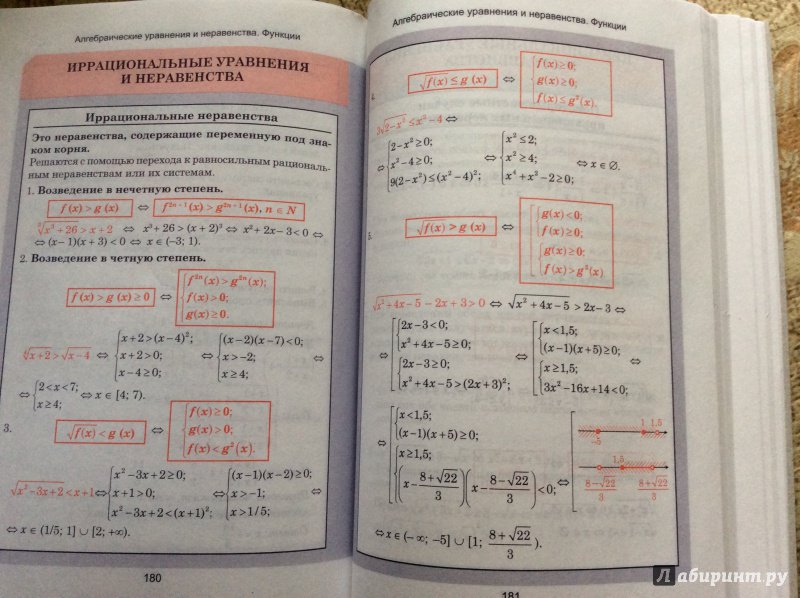 Алгебраические уравнения и неравенства. Функции
ИРРАЦИОНАЛЬНЫЕ УРАВНЕНИЯ
И НЕРАВЕНСТВА
Иррациональные неравенства
Это неравенства, содержащие переменную под зна-
ком корня.
Решаются с помощью перехода к равносильным рациональ-
ным неравенствам или их системам.
1. Возведение в нечетную степень.
f(x) > g(x) ⇔ f²ⁿ⁺¹(x) > g²ⁿ⁺¹(x), n ∈ N
∛(x³+26) > x+2 ⇔ x³+26 > (x+2)³ ⇔ x²+2x−3<0 ⇔
⇔ (x−1)(x+3)<0 ⇔ x ∈ (−3; 1).
2. Возведение в четную степень.
f(x) > g(x) ≥ 0 ⇔ { f²ⁿ(x) > g²ⁿ(x); f(x)>0; g(x)≥0.
√x+2 > √x−4 ⇔ { x+2>(x−4)²; x+2>0; x−4≥0; ⇔ { (x−2)(x−7)<0; x>−2; x≥4; ⇔
⇔ { 2<x<7; x≥4; ⇔ x ∈ [4; 7).
3. √f(x) < g(x) ⇔ { f(x)≥0; g(x)>0; f(x)<g²(x).
√(x²−3x+2) < x+1 ⇔ { x²−3x+2≥0; x+1>0; x²−3x+2<(x+1)²; ⇔ { (x−1)(x−2)≥0; x>−1; x>1/5; ⇔
⇔ x ∈ (1/5; 1] ∪ [2; +∞).
180
Алгебраические уравнения и неравенства. Функции
4. √f(x) ≤ g(x) ⇔ { f(x)≥0; g(x)≥0; f(x)≤g²(x).
3√(2−x²) ≤ x²−4 ⇔
⇔ { 2−x²≥0; x²−4≥0; 9(2−x²)≤(x²−4)²; ⇔ { x²≤2; x²≥4; x⁴+x²−2≥0; ⇔ x ∈ ∅.
5. √f(x) > g(x) ⇔ [ { g(x)<0; f(x)≥0; { g(x)≥0; f(x)>g²(x)
√(x²+4x−5) − 2x+3>0 ⇔ √(x²+4x−5) > 2x−3 ⇔
⇔ [ { 2x−3<0; x²+4x−5≥0; { 2x−3≥0; x²+4x−5>(2x+3)²; ⇔ [ { x<1,5; (x−1)(x+5)≥0; { x≥1,5; 3x²−16x+14<0; ⇔
⇔ [ { x<1,5; (x−1)(x+5)≥0; { x≥1,5; (x−(8+√22)/3)(x−(8−√22)/3)<0; ⇔ [
−5 1 1,5
1,5
(8−√22)/3 (8+√22)/3
⇔ x ∈ (−∞; −5] ∪ [1; (8+√22)/3).
181
Лабиринт.ру